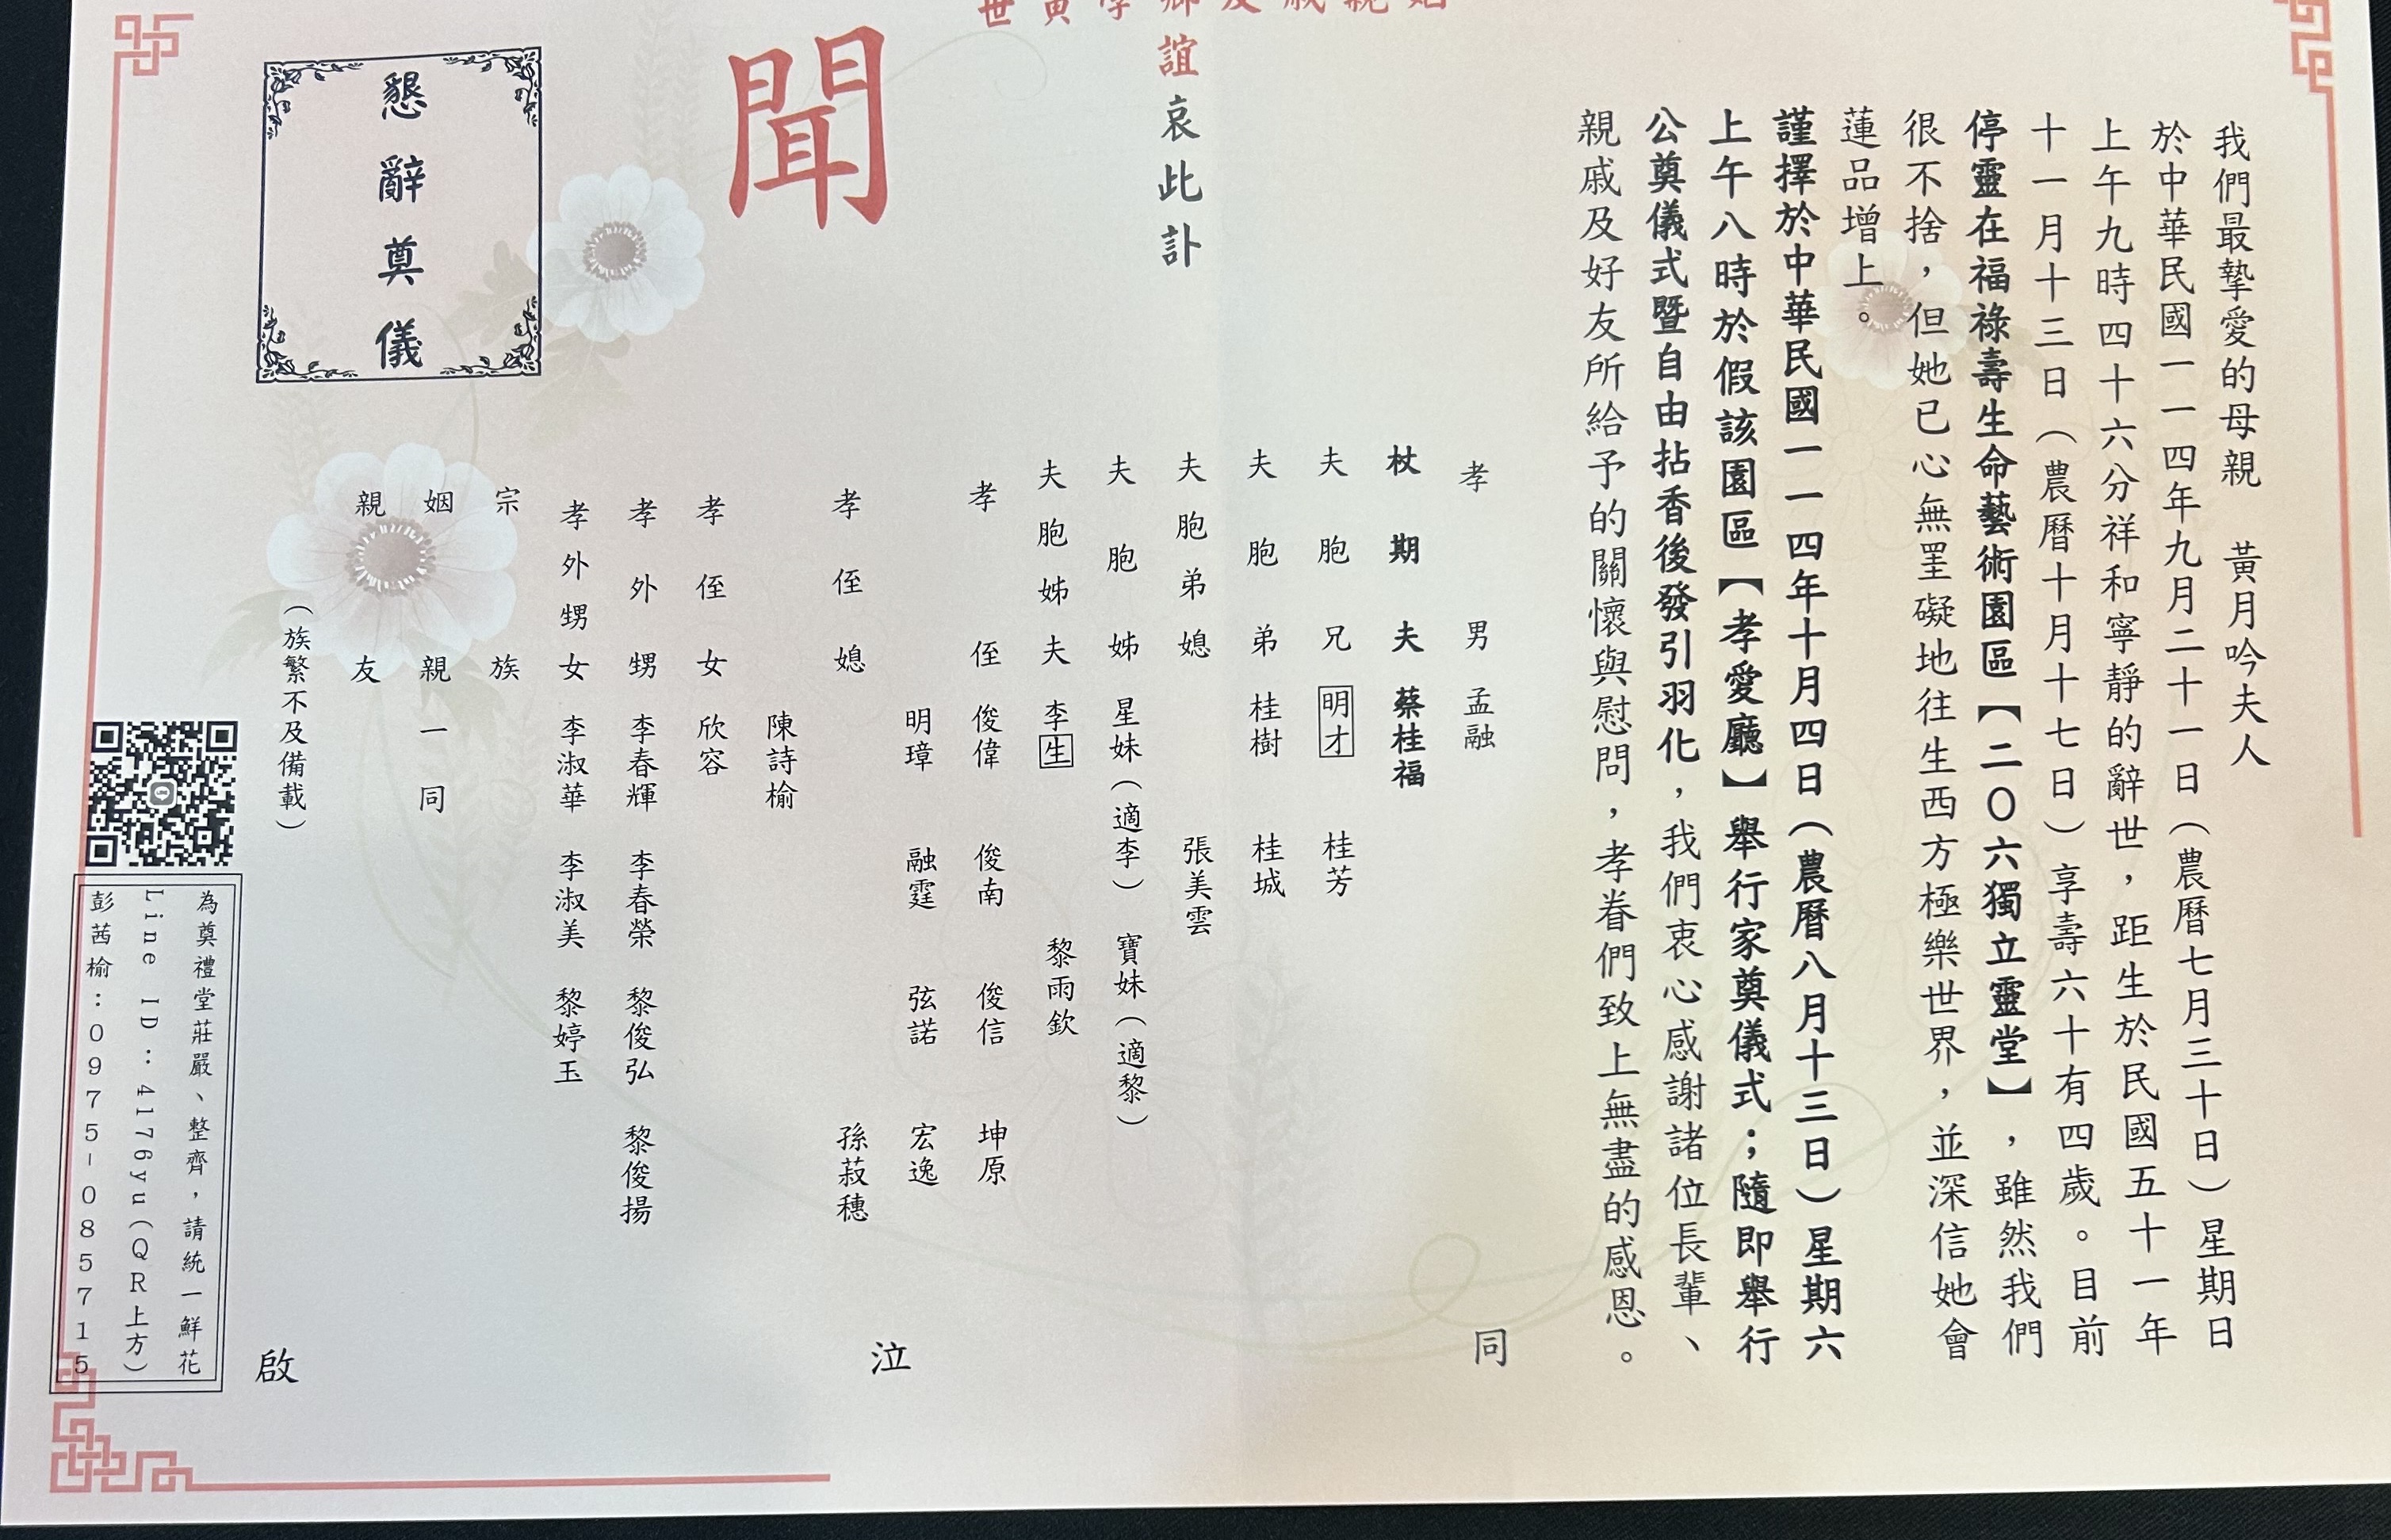 我們最摯愛的母親　黃月吟夫人
於中華民國一一四年九月二十一日（農曆七月三十日）星期日
上午九時四十六分祥和寧靜的辭世，距生於民國五十一年
十一月十三日（農曆十月十七日）享壽六十有四歲。目前
停靈在福祿壽生命藝術園區【二〇六獨立靈堂】，雖然我們
很不捨，但她已心無罣礙地往生西方極樂世界，並深信她會
蓮品增上。
謹擇於中華民國一一四年十月四日（農曆八月十三日）星期六
上午八時於假該園區【孝愛廳】舉行家奠儀式；隨即舉行
公奠儀式暨自由拈香後發引羽化，我們衷心感謝諸位長輩、
親戚及好友所給予的關懷與慰問，孝眷們致上無盡的感恩。
孝男　孟融　同
杖期夫　蔡桂福
夫胞兄　明才　桂芳
夫胞弟　桂樹　桂城
夫胞弟媳　張美雲
夫胞姊　星妹（適李）　寶妹（適黎）
夫胞姊夫　李生　黎雨欽
孝侄　俊偉　俊南　俊信　坤原
明璋　融霆　弦諾　宏逸　泣
孝侄媳　孫菽穗
陳詩榆
孝侄女　欣容
孝外甥　李春輝　李春榮　黎俊弘　黎俊揚
孝外甥女　李淑華　李淑美　黎婷玉
宗族
姻親一同
親友
（族繁不及備載）　啟
姻親戚友鄉學寅世
誼哀此訃
聞
懇辭奠儀
為奠禮堂莊嚴、整齊，請統一鮮花
Line ID：4176yu(QR上方)
彭茜榆：0975-085715